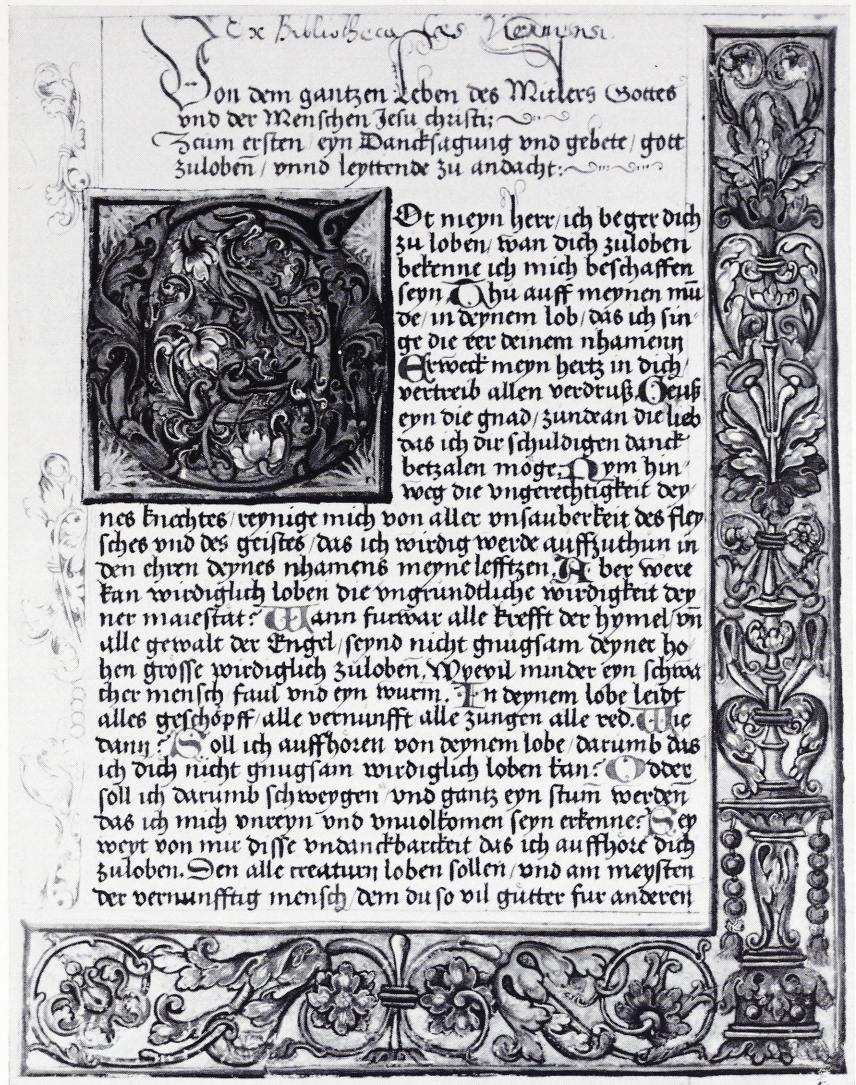 Ex Bibliotheca
Von dem gantzen Leben des Mitlers Gottes
vnd der Menschen Jesu christi:
Zcum ersten/ eyn Dancksagung vnd gebete/ gott
zulobeñ/ vnnd leyttende zu andacht:
Ot meyn herr/ ich beger dich
zu loben/ wan dich zuloben
bekenne ich mich beschaffen
seyn Thu auff meynen mū
de/ in deynem lob/ das ich sin-
ge die eer deinem nhamenn
Erweck meyn hertz in dich/
vertreib allen verdruß. Geuß
eyn die gnad/ zundean die lieb
das ich dir schuldigen danck
betzalen möge. Nym hin
weg die vngerechtigkeit dey-
nes knechtes/ reynige mich von aller vnsauberkeit des fley
sches vnd des geistes/ das ich wirdig werde auffzuthun in
den ehren deynes nhamens meyne lefftzen. Aber were
kan wirdiglich loben die vngrundtliche wirdigkeit dey
ner maiestat? Wann furwar alle krefft der hymel/ vñ
alle gewalt der Engel/ seynd nicht gnugsam deyner ho
hen grosse wirdiglich zuloben. Wyevil minder eyn schwa
cher mensch faul vnd eyn wurm. In deynem lobe leidt
alles geschöpff/ alle vernunfft/ alle zungen alle red. Wie
dann? Soll ich auffhoren von deynem lobe/ darumb das
ich dich nicht gnugsam wirdiglich loben kan? Odder
soll ich darumb schweygen/ vnd gantz eyn stum werden
das ich mich vnreyn vnd vnuolkomen seyn erkenne? Sey
weyt von mir disse vndanckbarckeit das ich auffhore dich
zuloben. Den alle creaturn loben sollen/ vnd am meysten
der vernunfftig mensch/ dem du so vil gütter fur anderen